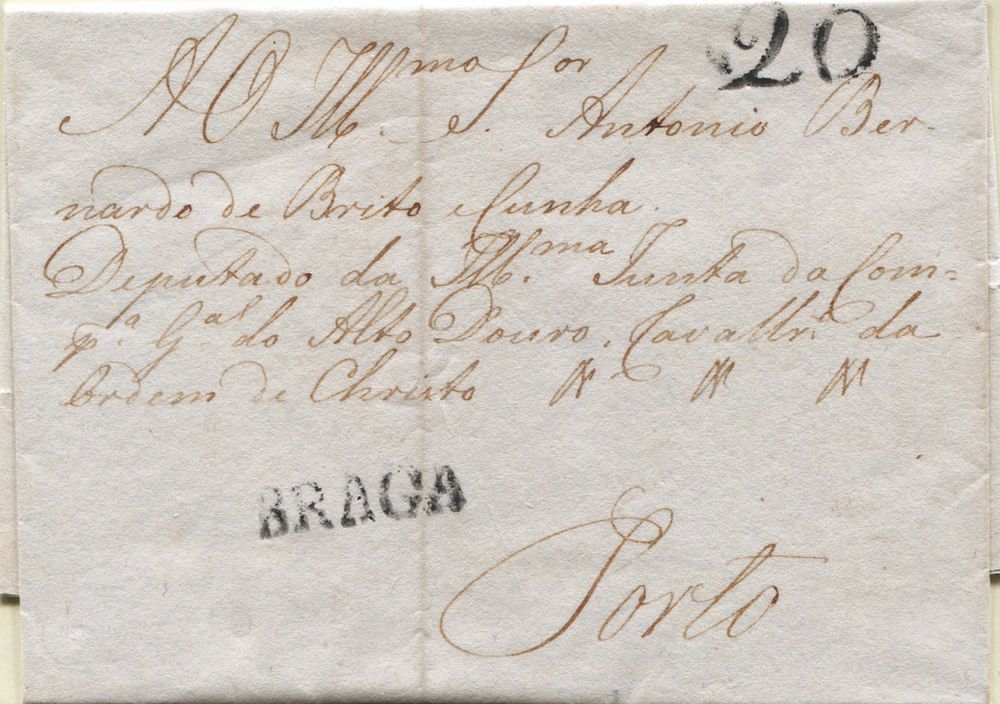 20
AO Ill.mo Sor
S. Antonio Ber-
nardo de Brito e Cunha.
Deputado da Ill.ma Junta da Com=
p.a G.al do Alto Douro, Cavallr.o da
Ordem de Christo
BRAGA
Porto